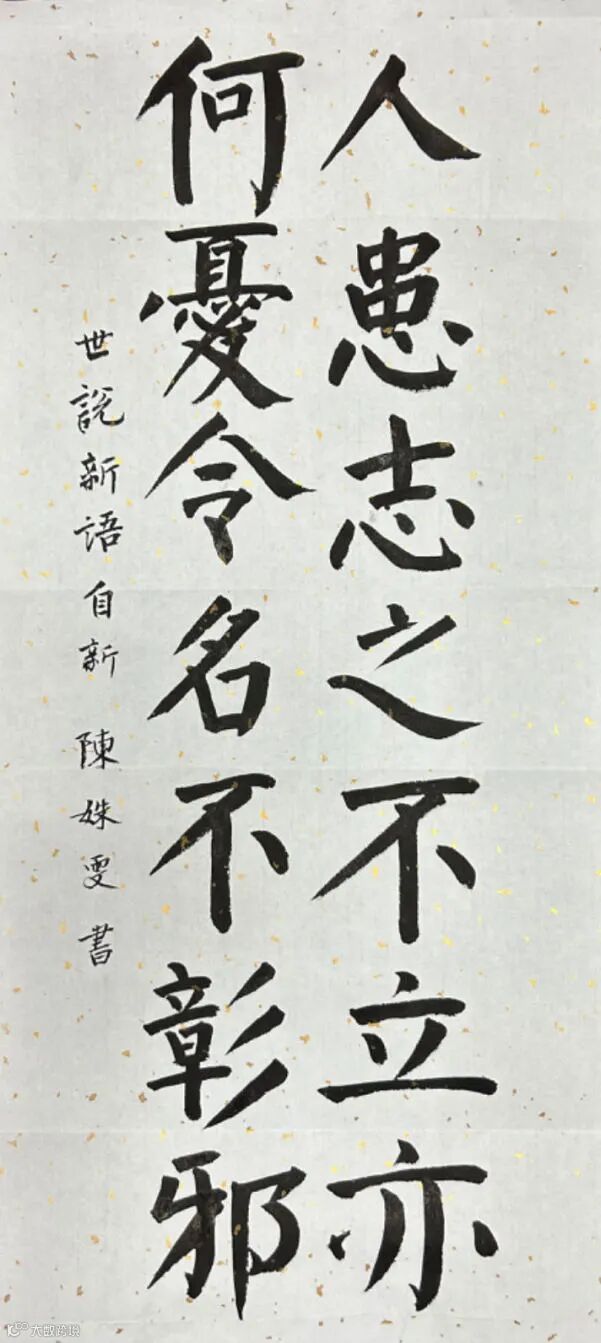 人患志之不立亦
何憂令名不彰邪
世說新語自新 陳姝雯書
大数跨境